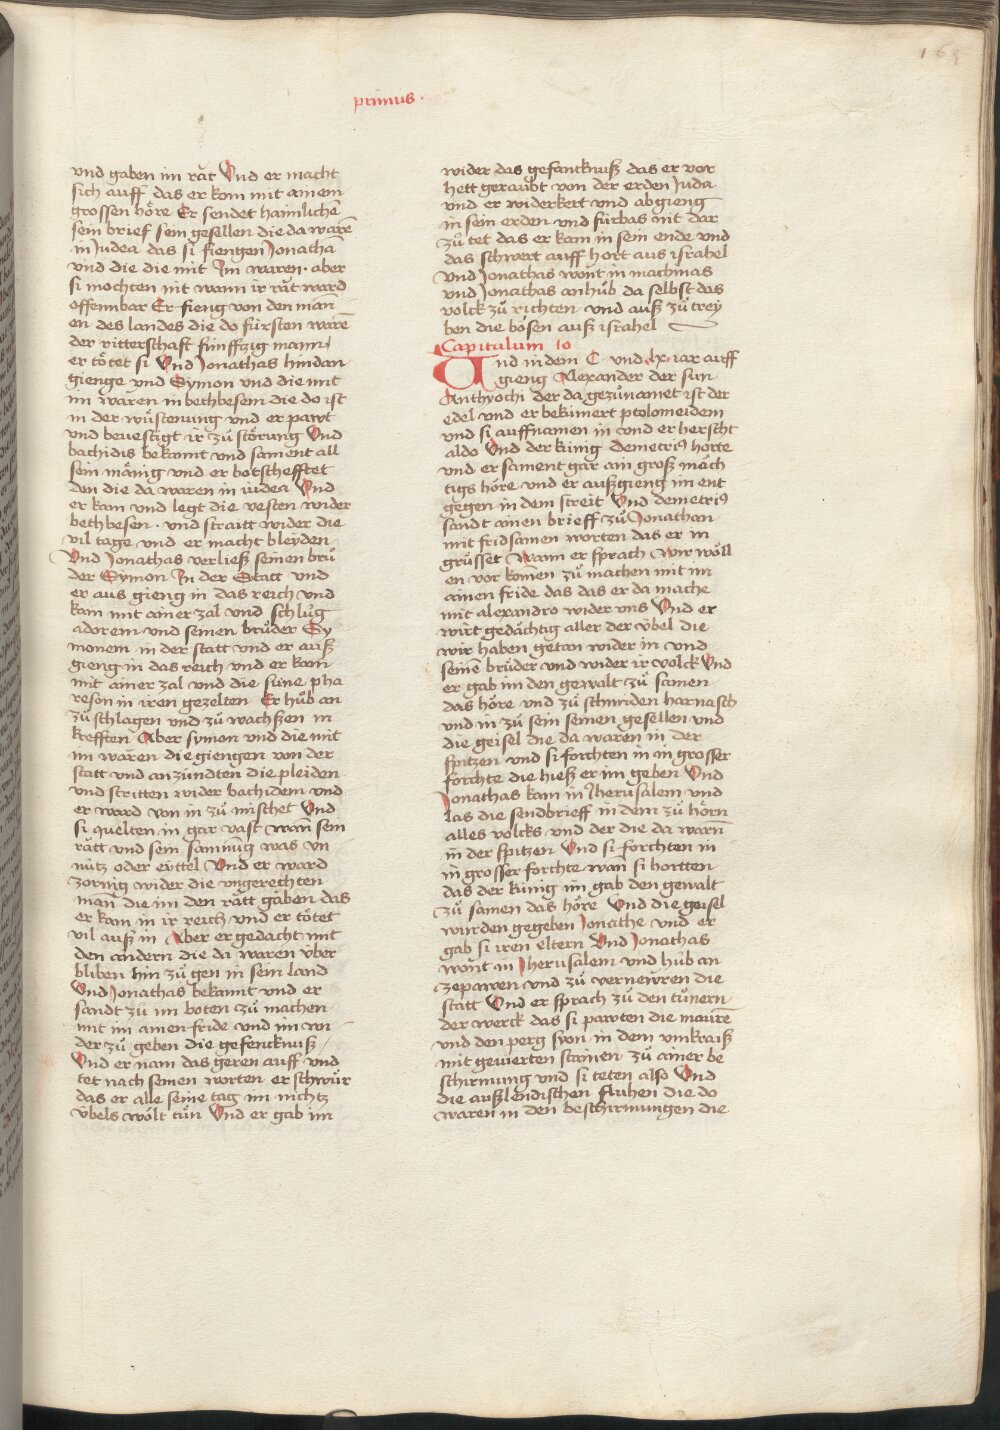 163
primus ·
vnd gaben im råt Vnd er macht
sich auff das er kom mit ainem
grossen höre Er sendet haimlichē
sein brief sein gesellen die da warē
in Judea das si fiengen Jonathā
vnd die die mit Im waren · aber
si mochten nit wann ir råt ward
offennbar Er fieng von den mañ
en des landes die do fürsten warē
der ritterschafft fünffzig mann
er tötet si Vnd Jonathas hindan
gienge vnd Symon vnd die mit
im waren in bethbesem die do ist
in der wüstenung vnd er pawt
vnd beuestigt ir zů störung Vnd
bachidis bekannt vnd sament all
sein mänig vnd er botschefftet
den die da waren in iudea Vnd
er kam vnd legt die vesten wider
bethbesen · vnd straitt wider die
vil tage vnd er macht bleyden
Vnd Jonathas verließ seinen brů
der Symon In der Statt vnd
er aus gieng in das reich vnd
kam mit ainer zal vnd schlůg
adorem vnd seinen brůder Sy
monem in der statt vnd er auß
gieng in das reich vnd er kam
mit ainer zal vnd die süne pha
reson in iren gezelten Er hůb an
zů schlagen vnd zů wachßen in
krefften Aber symon vnd die mit
im wåren die giengen von der
statt vnd anzündten die pleiden
vnd stritten wider bachidem vnd
er ward von in zů mischet Vnd
si quelten in gar vast wañ sein
rått vnd sein samnūg was vn
nütz oder eyttel Vnd er ward
zornig wider die vngerechten
mañ die im den rått gaben das
er kam in ir reich vnd er tötet
vil auß in Aber er gedacht mit
den andern die da waren über
bliben hin zů gen in sein land
Vnd Jonathas bekannt vnd er
sandt zů im boten zů machen
mit im ainen fride vnd im wi
der zů geben die gefencknuß
Vnd er nam das geren auff vnd
tet nach seinen worten er schwůr
das er alle seine tag im nichtz
übels wölt tůn Vnd er gab im
wider das gefancknuß das er vor
hett geraubt von der erden Juda
vnd er widerkert vnd abgieng
in sein erden vnd fürbas nit dar
zů tet das er kam in sein ende vnd
das schwert auff hort aus israhel
Vnd Jonathas wont in machmas
vnd Jonathas anhůb da selbst das
volck zů richten vnd auß zů trey
ben die bösen auß israhel
Capitulum 10
Und in dem C · vnd · lx · iar auff
gieng Alexander der sun
Anthyochi der da gezůnamet ist der
edel vnd er bekümert ptolomeidem
vnd si auffnamen in vnd er herscht
aldo Vnd der künig demetriꝰ horte
vnd er sament gar ain groß mäch
tigs höre vnd er außgieng im ent
gegen in dem streit Vnd demetriꝰ
sandt ainen brieff zů Jonathan
mit fridsamen worten das er in
grüsset Wann er sprach wir wöll
en vor komen zů machen mit im
ainen fride das das er da mache
mit alexandro wider vns Vnd er
wirt gedächtig aller der übel die
wir haben getan wider in vnd
seinē brüder vnd wider ir volck Vnd
er gab im den gewalt zů samen
das höre vnd zů schmiden harnasch
vnd in zů sein seinen gesellen vnd
die geisel die da waren in der
spitzen vnd si forchten in in grosser
forchte die hieß er im geben Vnd
Jonathas kam in Jherusalem vnd
las die sendbrieff in dem zů hörn
alles volcks vnd der die da warn
in der spitzen Vnd si forchten in
in grosser forchte wañ si hortten
das der künig im gab den gewalt
zů samen das höre Vnd die geisel
wurden gegeben Jonathe vnd er
gab si iren eltern Vnd Jonathas
wont in Jherusalem vnd hůb an
zepawen vnd zů vernewren die
statt Vnd er sprach zů den tůnern
der werck das si pawten die maurē
vnd den perg syon in dem vmkraiß
mit gevierten stainen zů ainer be
schirmung vnd si teten also Vnd
die außlendischen fluhen die do
waren in den beschirmungen die